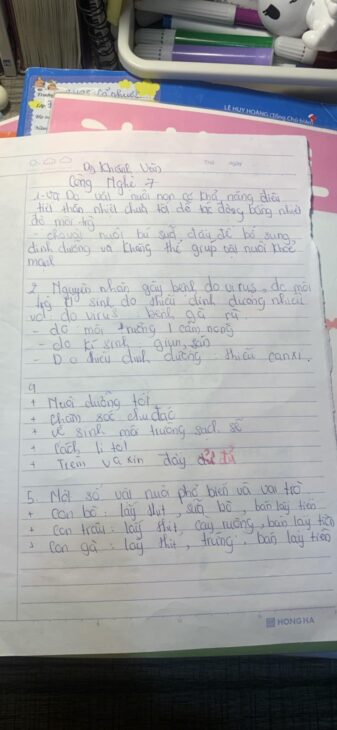 LÊ HUY HOÀNG (Tổng Chủ biên)
Khánh Vân
Công Nghệ 7
1. Vì Do vật nuôi non có khả năng điều
tiết thân nhiệt chưa tốt dễ tác động bằng nhiệt
độ môi trg
- cho vật nuôi bú sữa đầy để bổ sung
dinh dưỡng và kháng thể giúp vật nuôi khỏe
mạnh
2. Nguyên nhân gây bệnh do virus, do môi
trg kí sinh do thiếu dinh dưỡng
Vd do virus: bệnh gà rù
- do môi trường: cảm nóng
- do kí sinh: giun, sán
- Do thiếu dinh dưỡng: thiếu canxi.
+ Nuôi dưỡng tốt
+ chăm sóc chu đáo
+ vệ sinh môi trường sạch sẽ
+ cách li tốt
+ Tiêm vacxin đầy đủ
5. Một số vật nuôi phổ biến và vai trò
+ Con bò: lấy thịt, sữa bò, bán lấy tiền
+ Con trâu: lấy thịt, cày ruộng, bán lấy tiền
+ Con gà: lấy thịt, trứng, bán lấy tiền
HONG HA